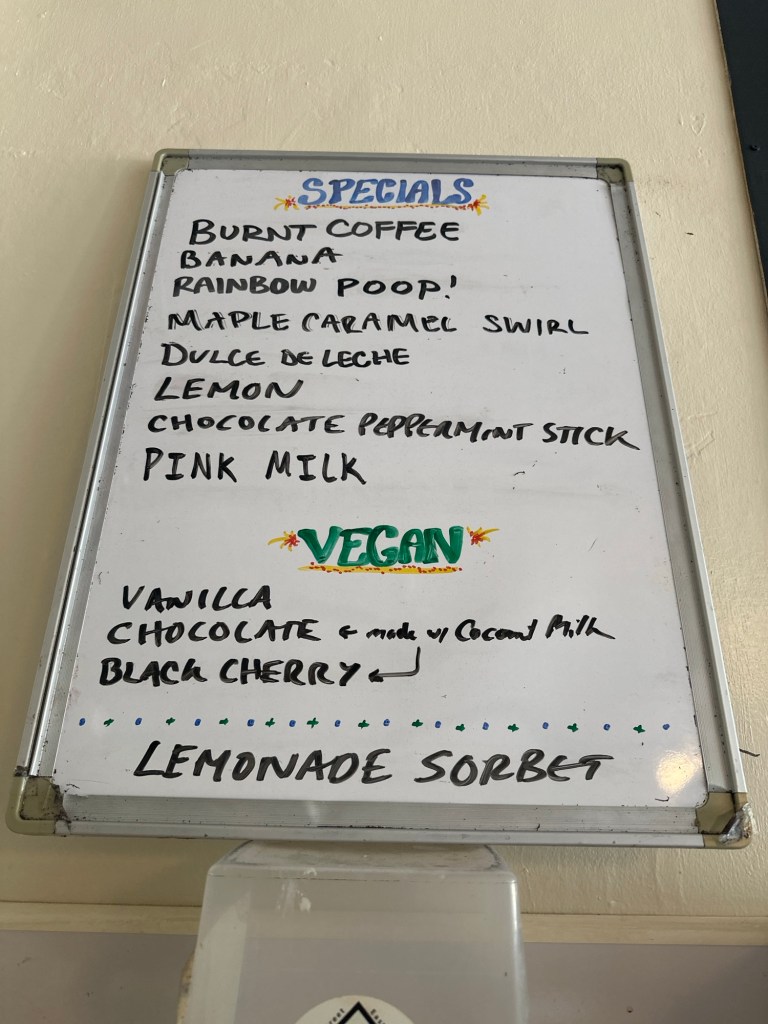 SPECIALS
BURNT COFFEE
BANANA
RAINBOW POOP!
MAPLE CARAMEL SWIRL
DULCE DE LECHE
LEMON
CHOCOLATE PEPPERMINT STICK
PINK MILK
VEGAN
VANILLA
CHOCOLATE ← made w/ Coconut Milk
BLACK CHERRY ←
LEMONADE SORBET